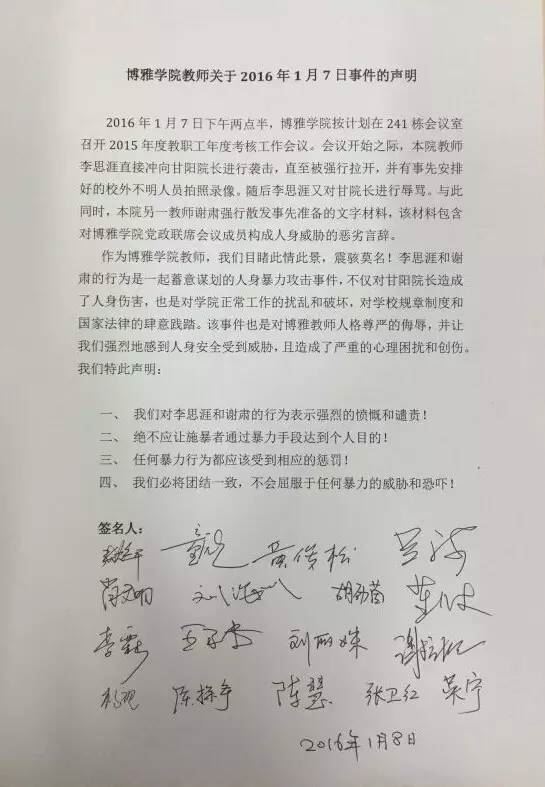 博雅学院教师关于 2016 年 1 月 7 日事件的声明
2016 年 1 月 7 日下午两点半，博雅学院按计划在 241 栋会议室
召开 2015 年度教职工年度考核工作会议。会议开始之际，本院教师
李思涯直接冲向甘阳院长进行袭击，直至被强行拉开，并有事先安排
好的校外不明人员拍照录像。随后李思涯又对甘院长进行辱骂。与此
同时，本院另一教师谢肃强行散发事先准备的文字材料，该材料包含
对博雅学院党政联席会议成员构成人身威胁的恶劣言辞。
作为博雅学院教师，我们目睹此情此景，震骇莫名！李思涯和谢
肃的行为是一起蓄意谋划的人身暴力攻击事件，不仅对甘阳院长造成
了人身伤害，也是对学院正常工作的扰乱和破坏，对学校规章制度和
国家法律的肆意践踏。该事件也是对博雅教师人格尊严的侮辱，并让
我们强烈地感到人身安全受到威胁，且造成了严重的心理困扰和创伤。
我们特此声明：
一、 我们对李思涯和谢肃的行为表示强烈的愤慨和谴责！
二、 绝不应让施暴者通过暴力手段达到个人目的！
三、 任何暴力行为都应该受到相应的惩罚！
四、 我们必将团结一致，不会屈服于任何暴力的威胁和恐吓！
签名人：
黄俊松 吕海
肖文明 刘海川
李霖 刘丽姝
杨砚 陈探宇 陈慧 张卫红 吴宁
2016年1月8日